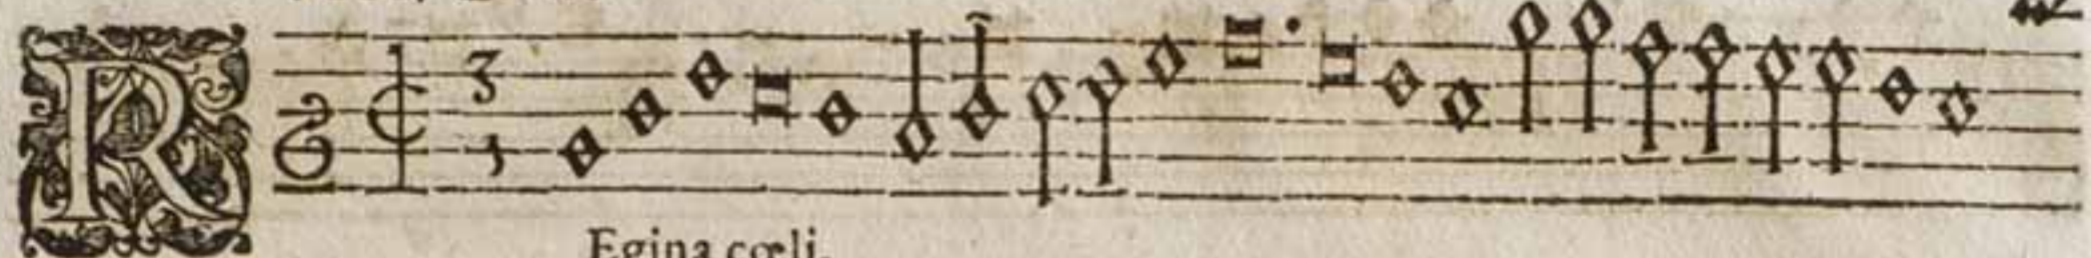 R
3
1
Egina cœli.